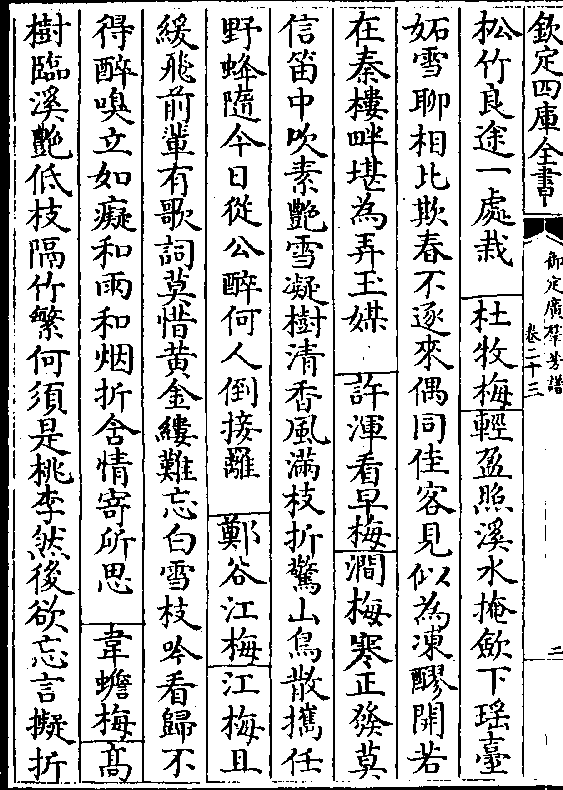 欽定四庫全書
御定廣羣芳譜
卷二十三
二
松竹良途一處栽 杜牧梅輕盈照溪水掩斂下瑶臺
妬雪聊相比欺春不逐來偶同佳客見似為凍醪開若
在秦樓畔堪為弄玉媒 許渾看早梅澗梅寒正發莫
信笛中吹素艷雪凝樹清香風滿枝折驚山鳥散攜任
野蜂隨今日從公醉何人倒接䍦 鄭谷江梅江梅且
緩飛前輩有歌詞莫惜黄金縷難忘白雪枝吟看歸不
得醉嗅立如癡和雨和烟折含情寄所思 韋蟾梅高
樹臨溪艷低枝隔竹繁何須是桃李然後欲忘言擬折